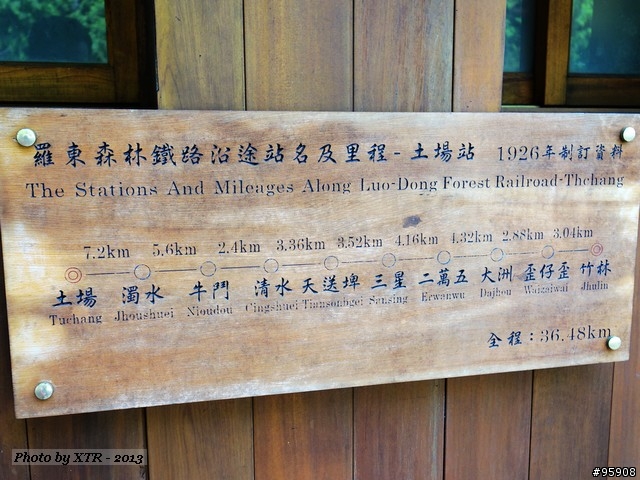 羅東森林鐵路沿途站名及里程-土場站 1926年制訂資料
The Stations And Mileages Along Luo-Dong Forest Railroad-Thchang
7.2km 5.6km 2.4km 3.36km 3.52km 4.16km 4.32km 2.88km 3.04km
土場 濁水 牛鬥 清水 天送埤 三星 二萬五 大洲 歪仔歪 竹林
Tuchang Jhoushuei Nioudou Cingshuei Tiansongpei Sansing Erwanwu Dajhou Waizaiwai Jhulin
全程：36.48km
Photo by XTR - 2013
#95908